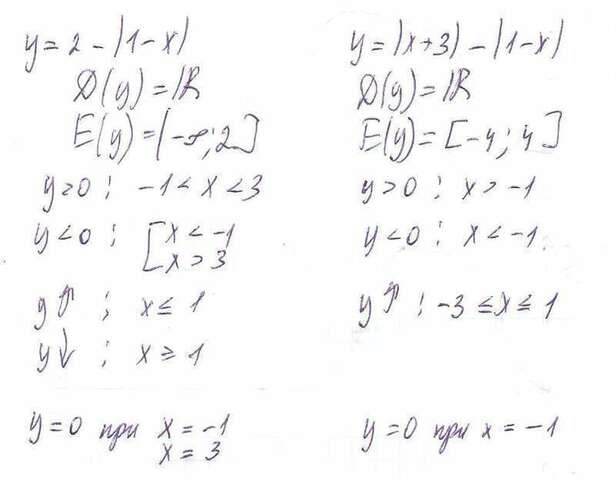 y = 2 - |1 - x|
D(y) = ℝ
E(y) = (-∞; 2]
y > 0 : -1 < x < 3
y < 0 : [ x < -1
x > 3
y↑ ; x ≤ 1
y↓ ; x ≥ 1
y = 0 при x = -1
x = 3
y = |x + 3| - |1 - x|
D(y) = ℝ
E(y) = [-4; 4]
y > 0 : x > -1
y < 0 : x < -1
y↑ : -3 ≤ x ≤ 1
y = 0 при x = -1